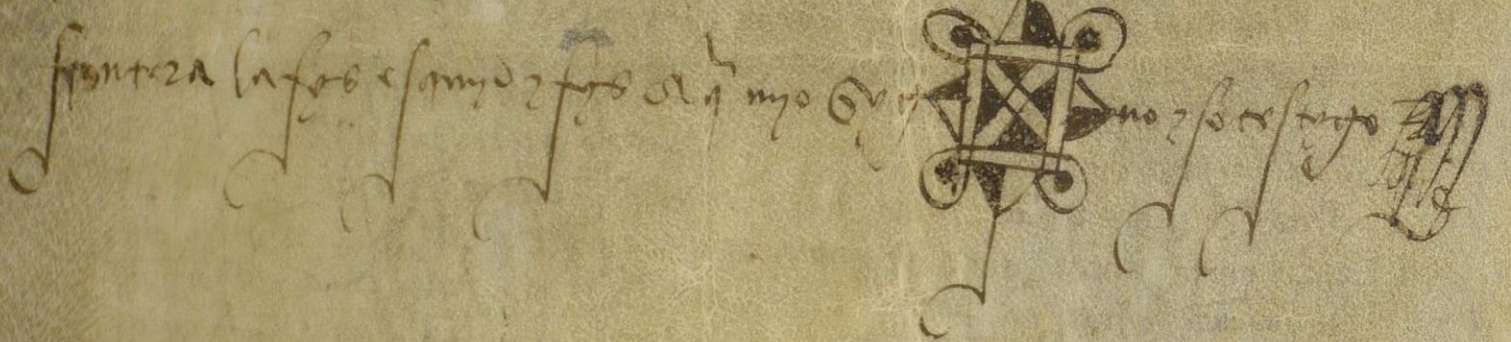 frontera la fys escriuir e fys aqͥ mio syg no e so testigo